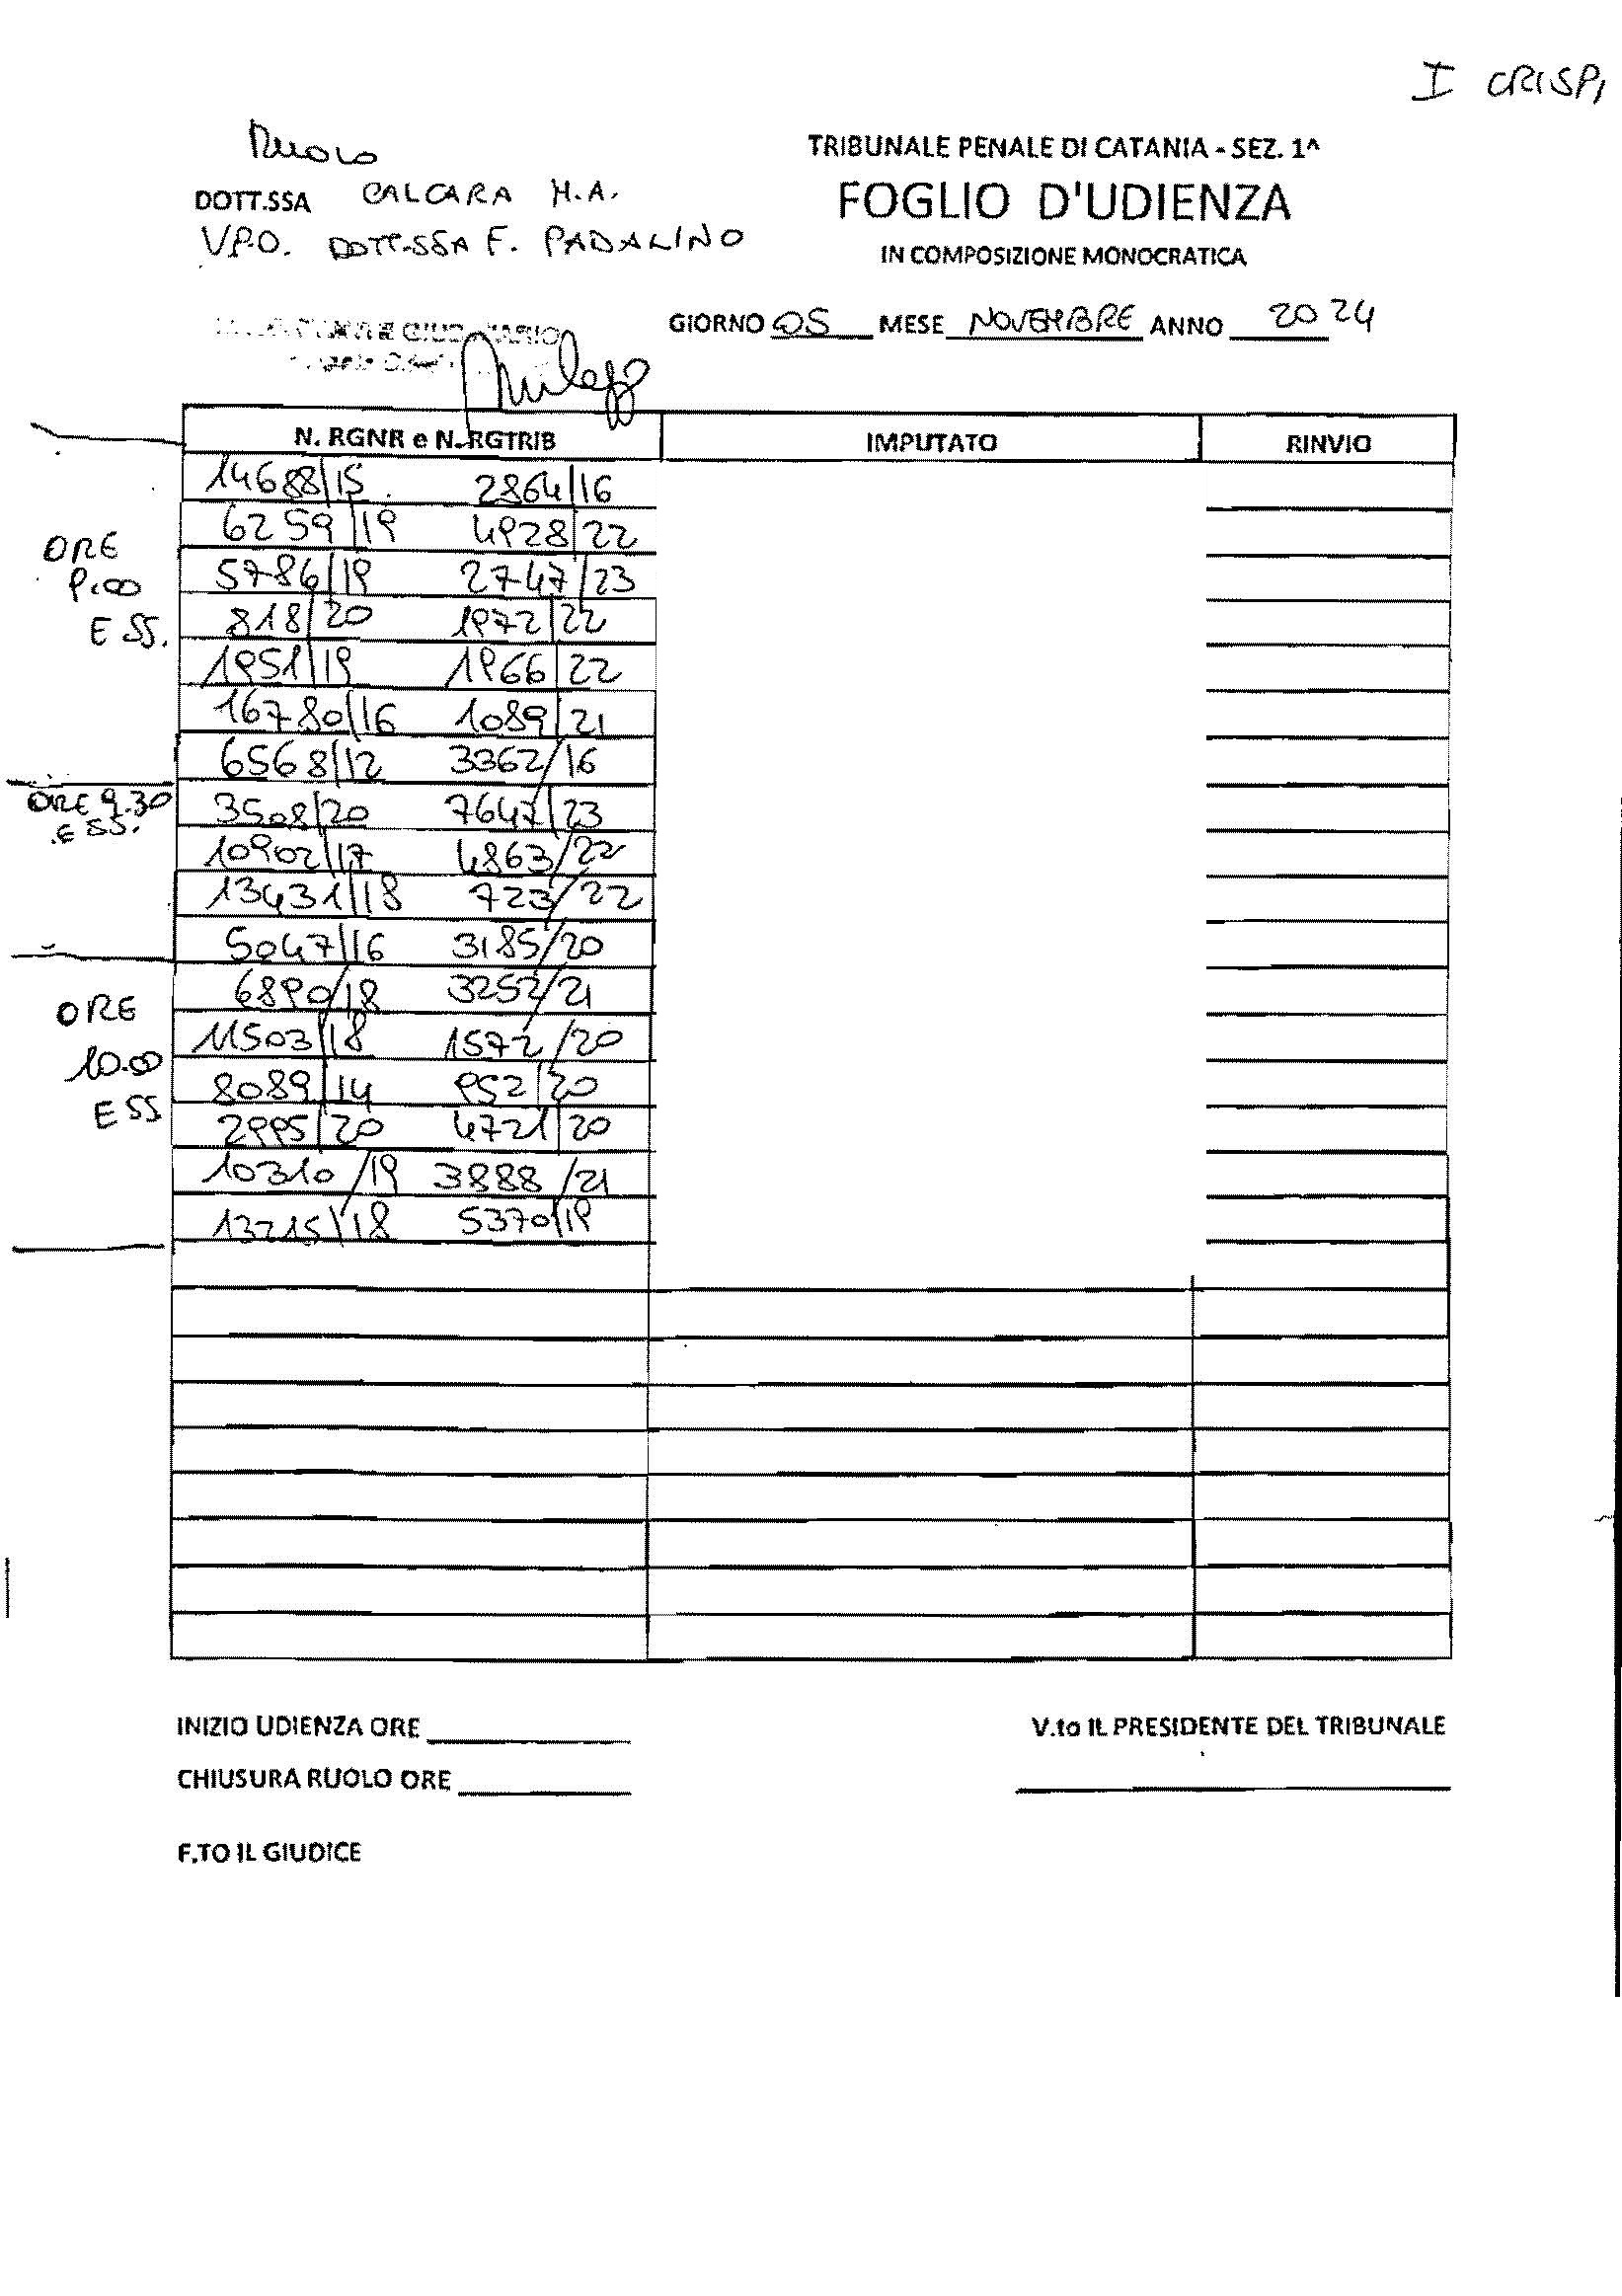 I CRISPI
RUOLO
TRIBUNALE PENALE DI CATANIA - SEZ. 1^
DOTT.SSA CALCARA M.A.
FOGLIO D'UDIENZA
V.P.O. DOTT.SSA F. PADALINO
IN COMPOSIZIONE MONOCRATICA
GIORNO 05 MESE NOVEMBRE ANNO 2024
N. RGNR e N. RGTRIB IMPUTATO RINVIO
14688/15 2864/16
6259/19 4928/22
ORE
5786/19 2747/23
9.00
818/20 1972/22
E SS.
1951/19 1966/22
16780/16 1089/21
6568/12 3362/16
ORE 9.30
3508/20 7647/23
E SS.
10902/17 4863/22
13431/18 723/22
5047/16 3185/20
6890/18 3252/21
ORE
11503/18 1572/20
10.00
8089/14 952/20
E SS
2995/20 4721/20
10310/19 3888/21
13215/18 5370/19
INIZIO UDIENZA ORE
V.to IL PRESIDENTE DEL TRIBUNALE
CHIUSURA RUOLO ORE
F.TO IL GIUDICE